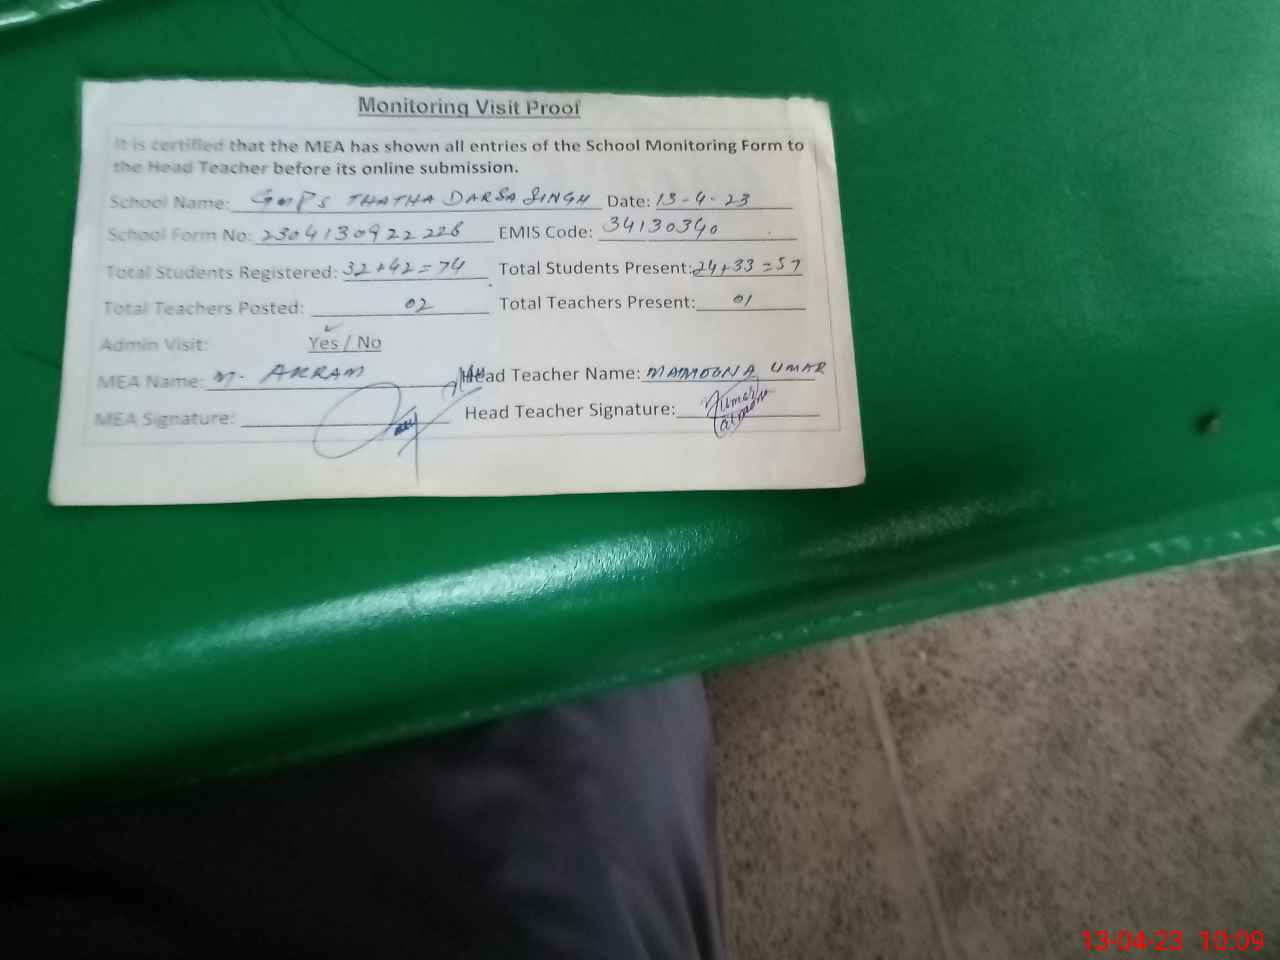 Monitoring Visit Proof
It is certified that the MEA has shown all entries of the School Monitoring Form to
the Head Teacher before its online submission.
School Name: GMPS THATHA DARSA SINGH Date: 13-4-23
School Form No: 2304130922228 EMIS Code: 34130340
Total Students Registered: 32+42=74 Total Students Present: 24+33=57
Total Teachers Posted: 02 Total Teachers Present: 01
Admin Visit: Yes / No
MEA Name: M. AKRAM Head Teacher Name: MAIMOONA UMAR
MEA Signature: Head Teacher Signature:
13-04-23 10:09